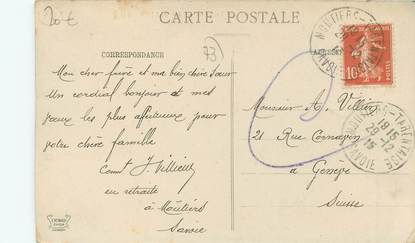 20 €
CARTE POSTALE
73
CORRESPONDANCE
Mon cher frère et ma bien chère sœur
Un cordial bonjour et mes
vœux les plus affectueux pour
votre chère famille
Comt J. Villien
en retraite
à Moûtiers
Savoie
Monsieur A. Villien
21 Rue Cornavin
à Genève
Suisse
10
MOUTIERS-TARENTAISE
SAVOIE
MOUTIERS-TARENTAISE
19 15
29-12
15
SAVOIE